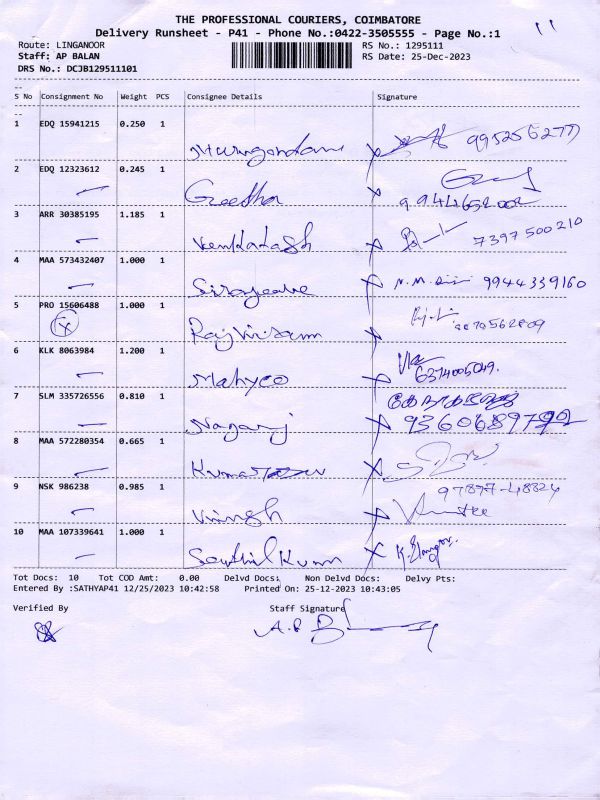 THE PROFESSIONAL COURIERS, COIMBATORE
Delivery Runsheet - P41 - Phone No.:0422-3505555 - Page No.:1
Route: LINGANOOR RS No.: 1295111
Staff: AP BALAN RS Date: 25-Dec-2023
DRS No.: DCJB129511101
S No Consignment No Weight PCS Consignee Details Signature
1 EDQ 15941215 0.250 1
2 EDQ 12323612 0.245 1
Geetha
3 ARR 30385195 1.185 1
Venkatash 7397500210
4 MAA 573432407 1.000 1
9944339160
5 PRO 15606488 1.000 1
6 KLK 8063984 1.200 1
Mahyco 6374005049.
7 SLM 335726556 0.810 1
Nagaraj
8 MAA 572280354 0.665 1
9 NSK 986238 0.985 1 97877-48824
10 MAA 107339641 1.000 1
Senthil Kumar
Tot Docs: 10 Tot COD Amt: 0.00 Delvd Docs: Non Delvd Docs: Delvy Pts:
Entered By :SATHYAP41 12/25/2023 10:42:58 Printed On: 25-12-2023 10:43:05
Verified By Staff Signature